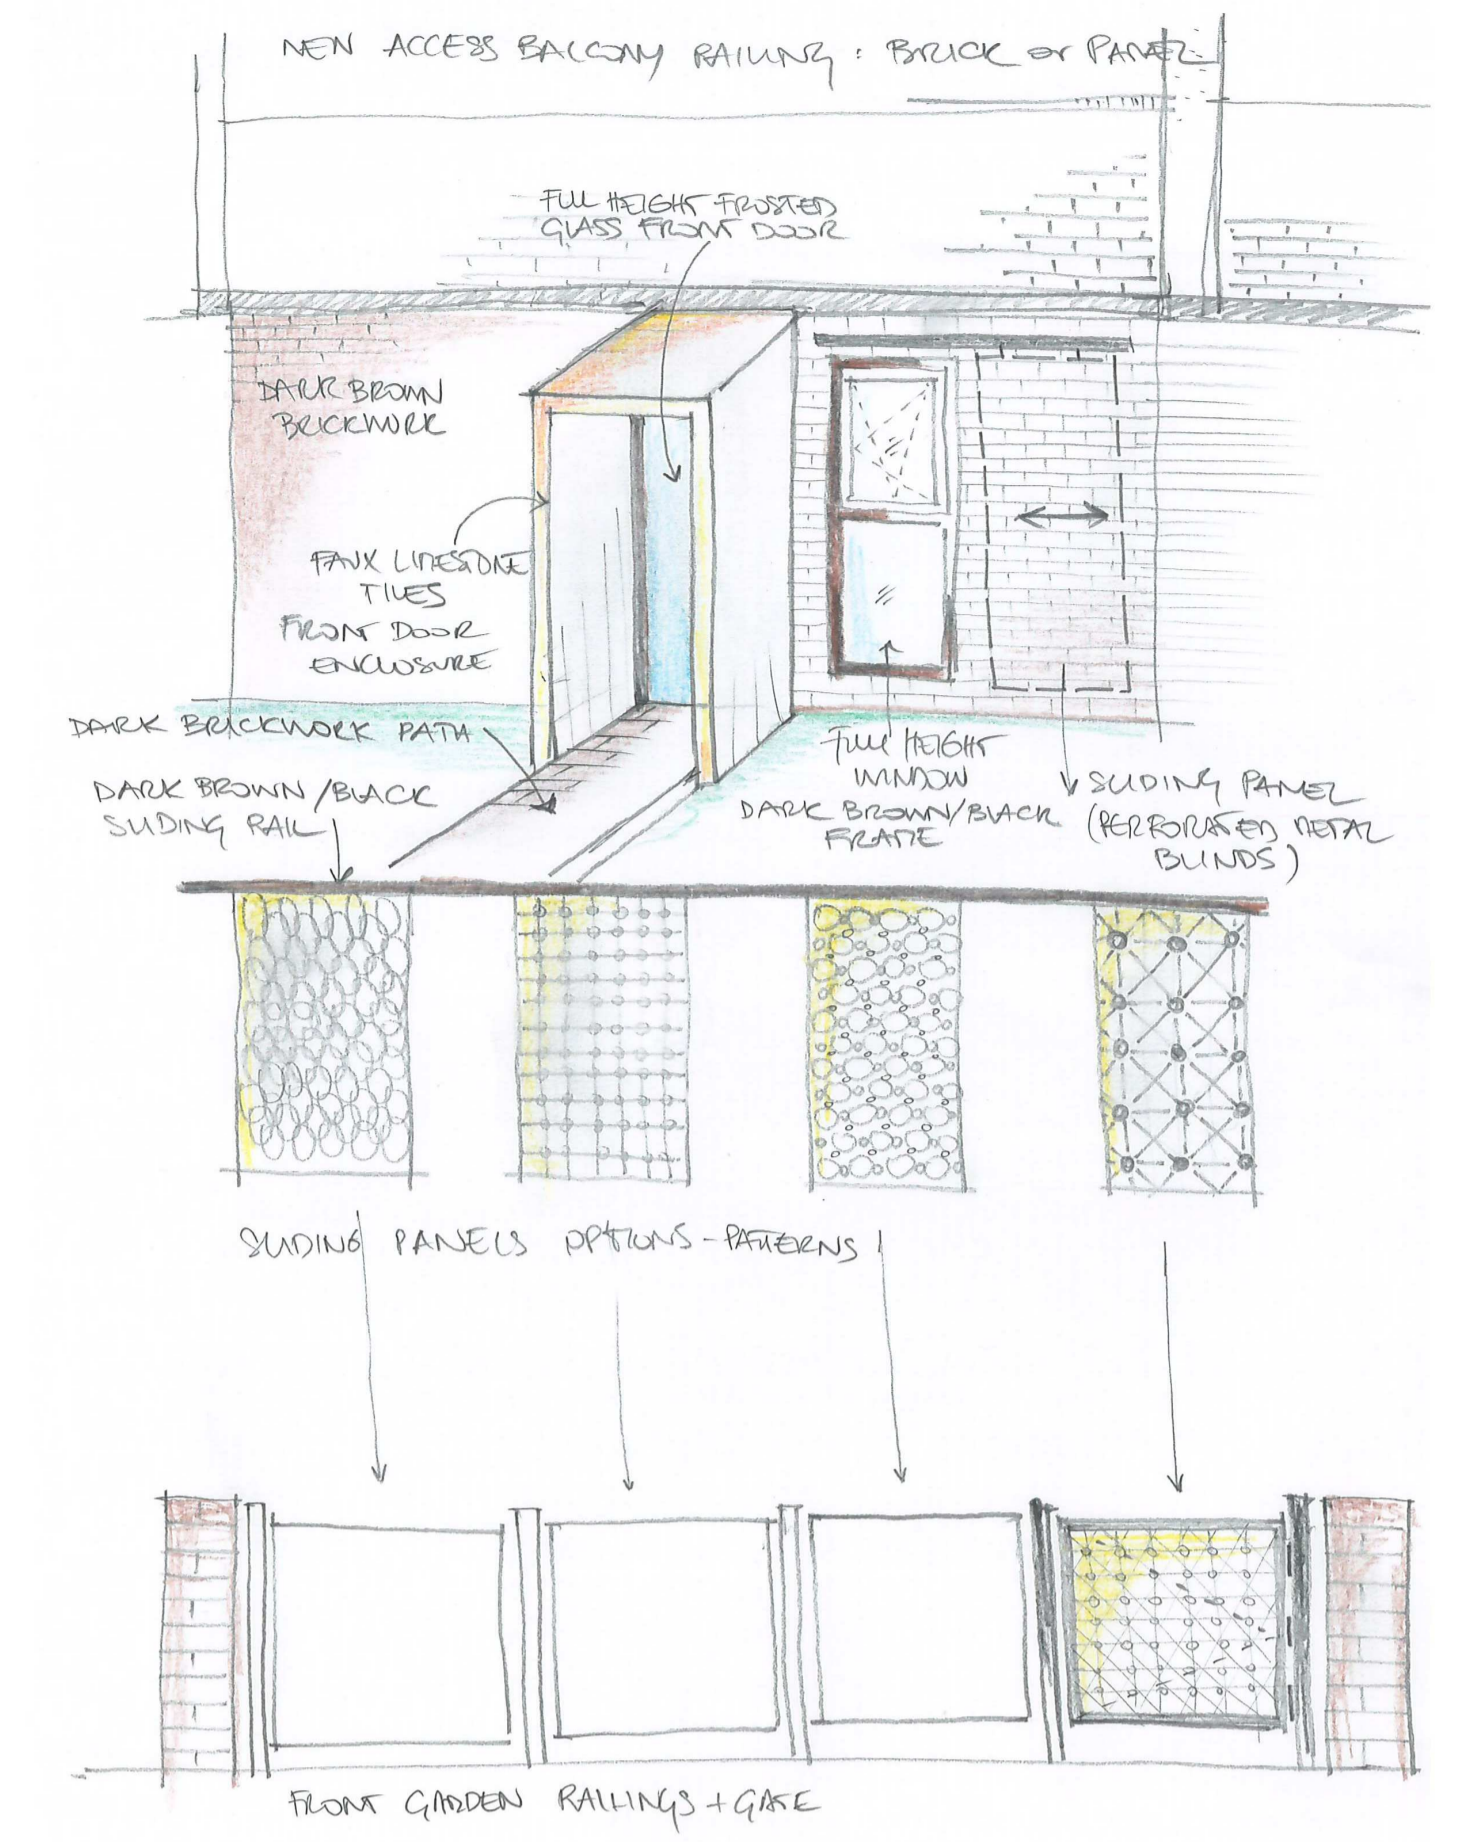 NEW ACCESS BALCONY RAILING : BRICK or PANEL
FULL HEIGHT FROSTED
GLASS FRONT DOOR
DARK BROWN
BRICKWORK
FAUX LIMESTONE
TILES
FRONT DOOR
ENCLOSURE
DARK BRICKWORK PATH
DARK BROWN/BLACK
SLIDING RAIL
FULL HEIGHT
WINDOW
DARK BROWN/BLACK
FRAME
SLIDING PANEL
(PERFORATED METAL
BLINDS)
SLIDING PANELS OPTIONS - PATTERNS
FRONT GARDEN RAILINGS + GATE